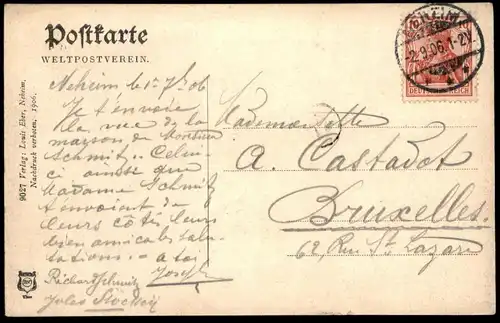 Postkarte
WELTPOSTVEREIN.
NEHEIM
2.9.06. 1-2N.
DEUTSCHES REICH
9027 Verlag: Louis Eber, Neheim.
Nachdruck verboten. 1906.
Neheim le 1r 7bre 06
Je t'envoie
la vue de la
maison de Monsieur
Schmitz. Celui
ci ainsi que
Madame Schmitz
t'envoient de
leurs côté leurs
bien amicales salu-
tations. – à toi
Joseph
Richard Schmitz
Jules
Mademoiselle
A. Castadot
Bruxelles.
62, Rue St Lazare